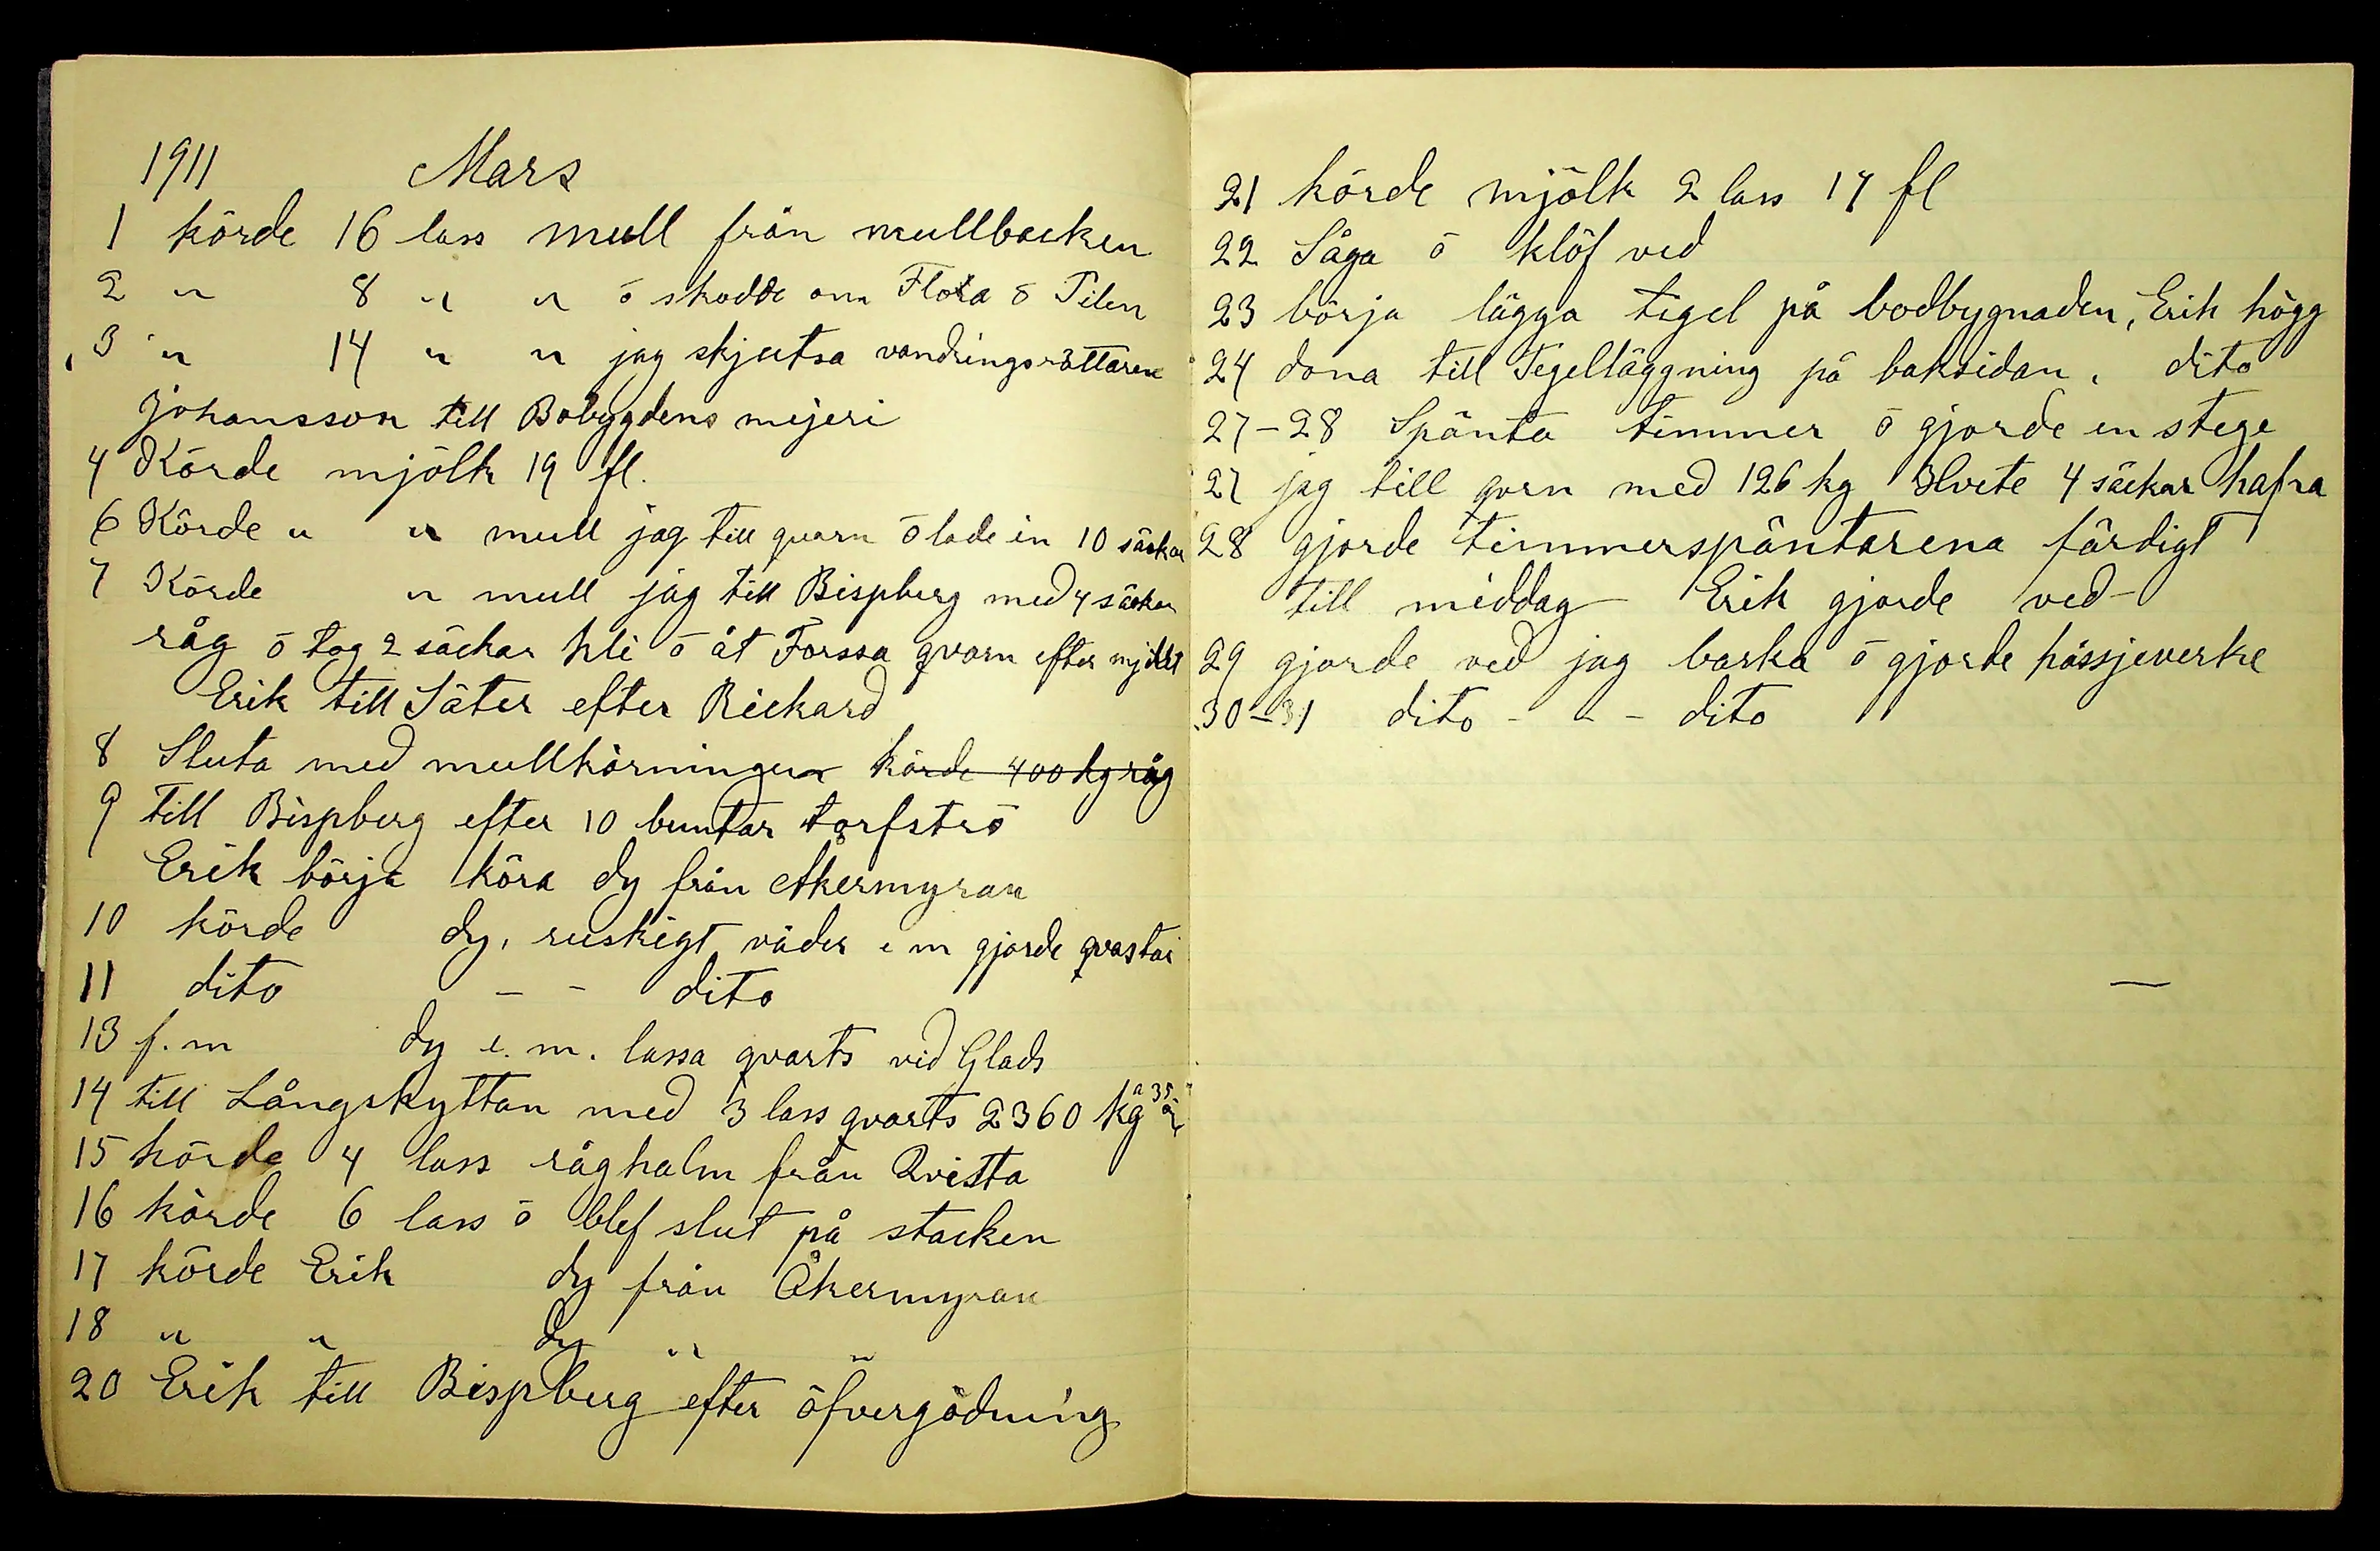 1911 Mars
1 körde 16 lass mull från mullbacken
2 " 8 " " ō skodde om Flora ō Pilen
3 " 14 " " jag skjutsa vandringsrättaren
Johansson till Bobygdens mejeri
4 Körde mjölk 19 fl.
6 Körde " " mull jag till quarn ō lade in 10 säckar
7 Körde " mull jag till Bispberg med 4 säckar
råg ō tog 2 säckar kli ō åt Forssa qvarn efter mjölet
Erik till Säter efter Rickard
8 Sluta med mullkörningen körde 400 kg råg
9 till Bispberg efter 10 buntar torfströ
Erik börja köra dy från Åkermyran
10 körde dy, ruskigt väder e m gjorde qvastar
11 dito - - dito
13 f.m dy e.m. lassa qvarts vid Glads
14 till Långshyttan med 3 lass qvarts 2360 kg a 35
15 körde 4 lass råghalm från Qvista
16 körde 6 lass ō blef slut på stacken
17 körde Erik dy från Åkermyran
18 " " dy " "
20 Erik till Bispberg efter öfvergödning
21 körde mjölk 2 lass 17 fl
22 Såga ō klöf ved
23 börja lägga tegel på bodbygnaden, Erik högg
24 dona till Tegelläggning på baksidan, dito
27-28 Spänta timmer ō gjorde en stege
27 jag till qvrn med 126 kg Hvete 4 säckar hafra
28 gjorde timmerspäntarena färdigt
till middag Erik gjorde ved -
29 gjorde ved jag barka ō gjorde hässjeverke
30-31 dito - - - dito